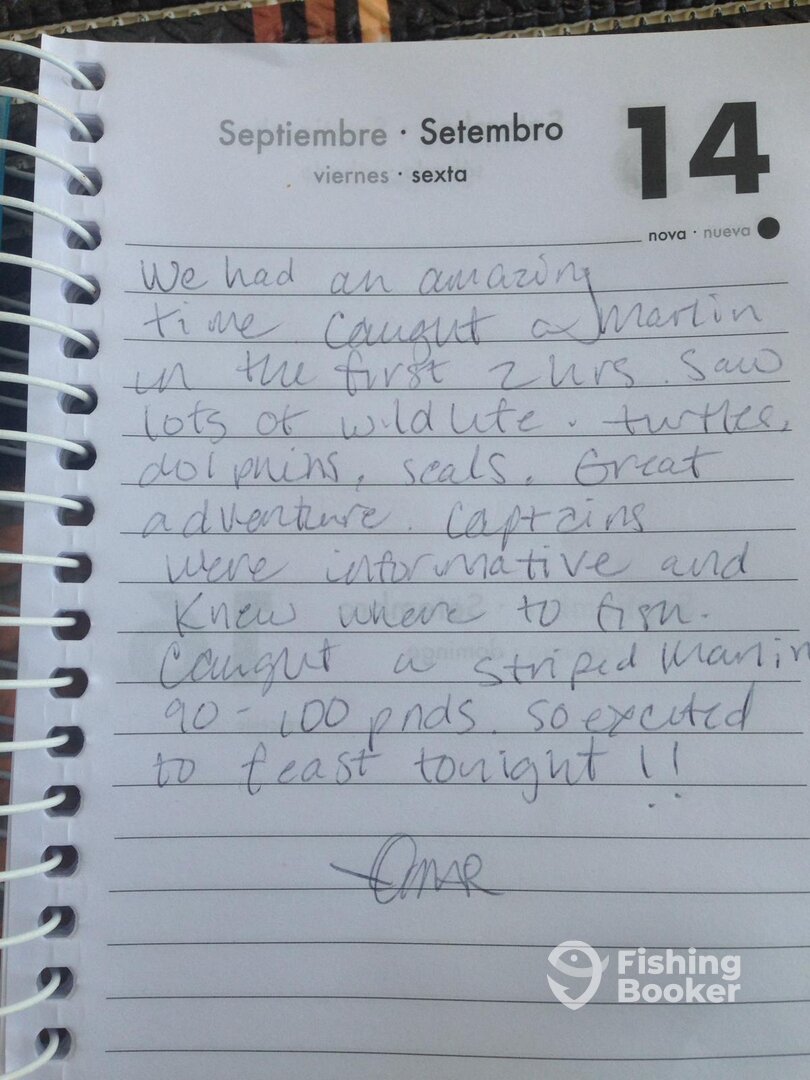 Septiembre · Setembro
14
viernes · sexta
nova · nueva
We had an amazing
time. Caught a Marlin
in the first 2 hrs. Saw
lots of wildlife. turtles,
dolphins, seals. Great
adventure. Captains
were informative and
knew where to fish.
Caught a striped Marlin
90-100 pnds. So excited
to feast tonight !!
Omar
Fishing
Booker